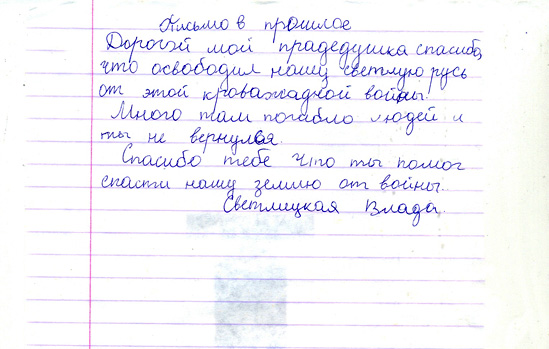 Письмо в прошлое
Дорогой мой прадедушка спасибо,
что освободил нашу светлую русь
от этой кроважадной войны.
Много там погибло людей и
ты не вернулся.
Спасибо тебе что ты помог
спасти нашу землю от войны.
Светлицкая Влада.